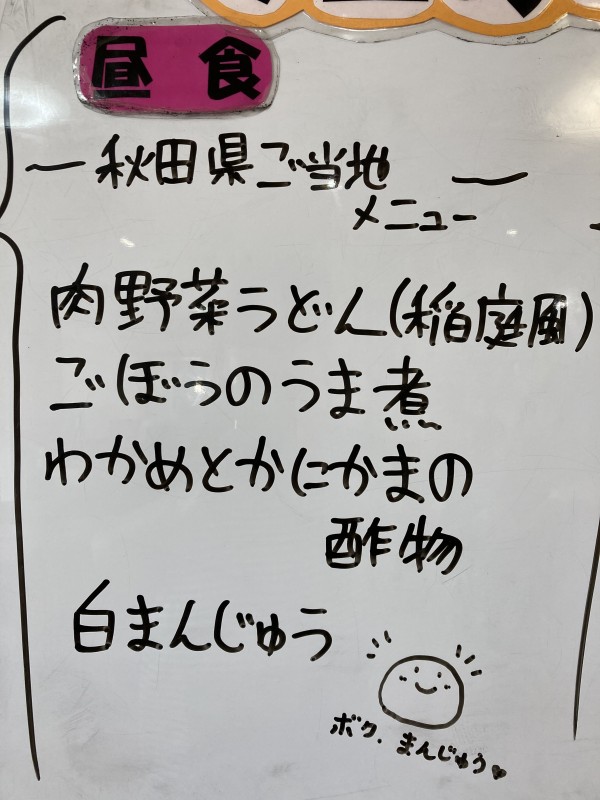 昼食
ー秋田県ご当地ー
メニュー
肉野菜うどん(稲庭風)
ごぼうのうま煮
わかめとかにかまの
酢物
白まんじゅう
ボク、まんじゅう♥